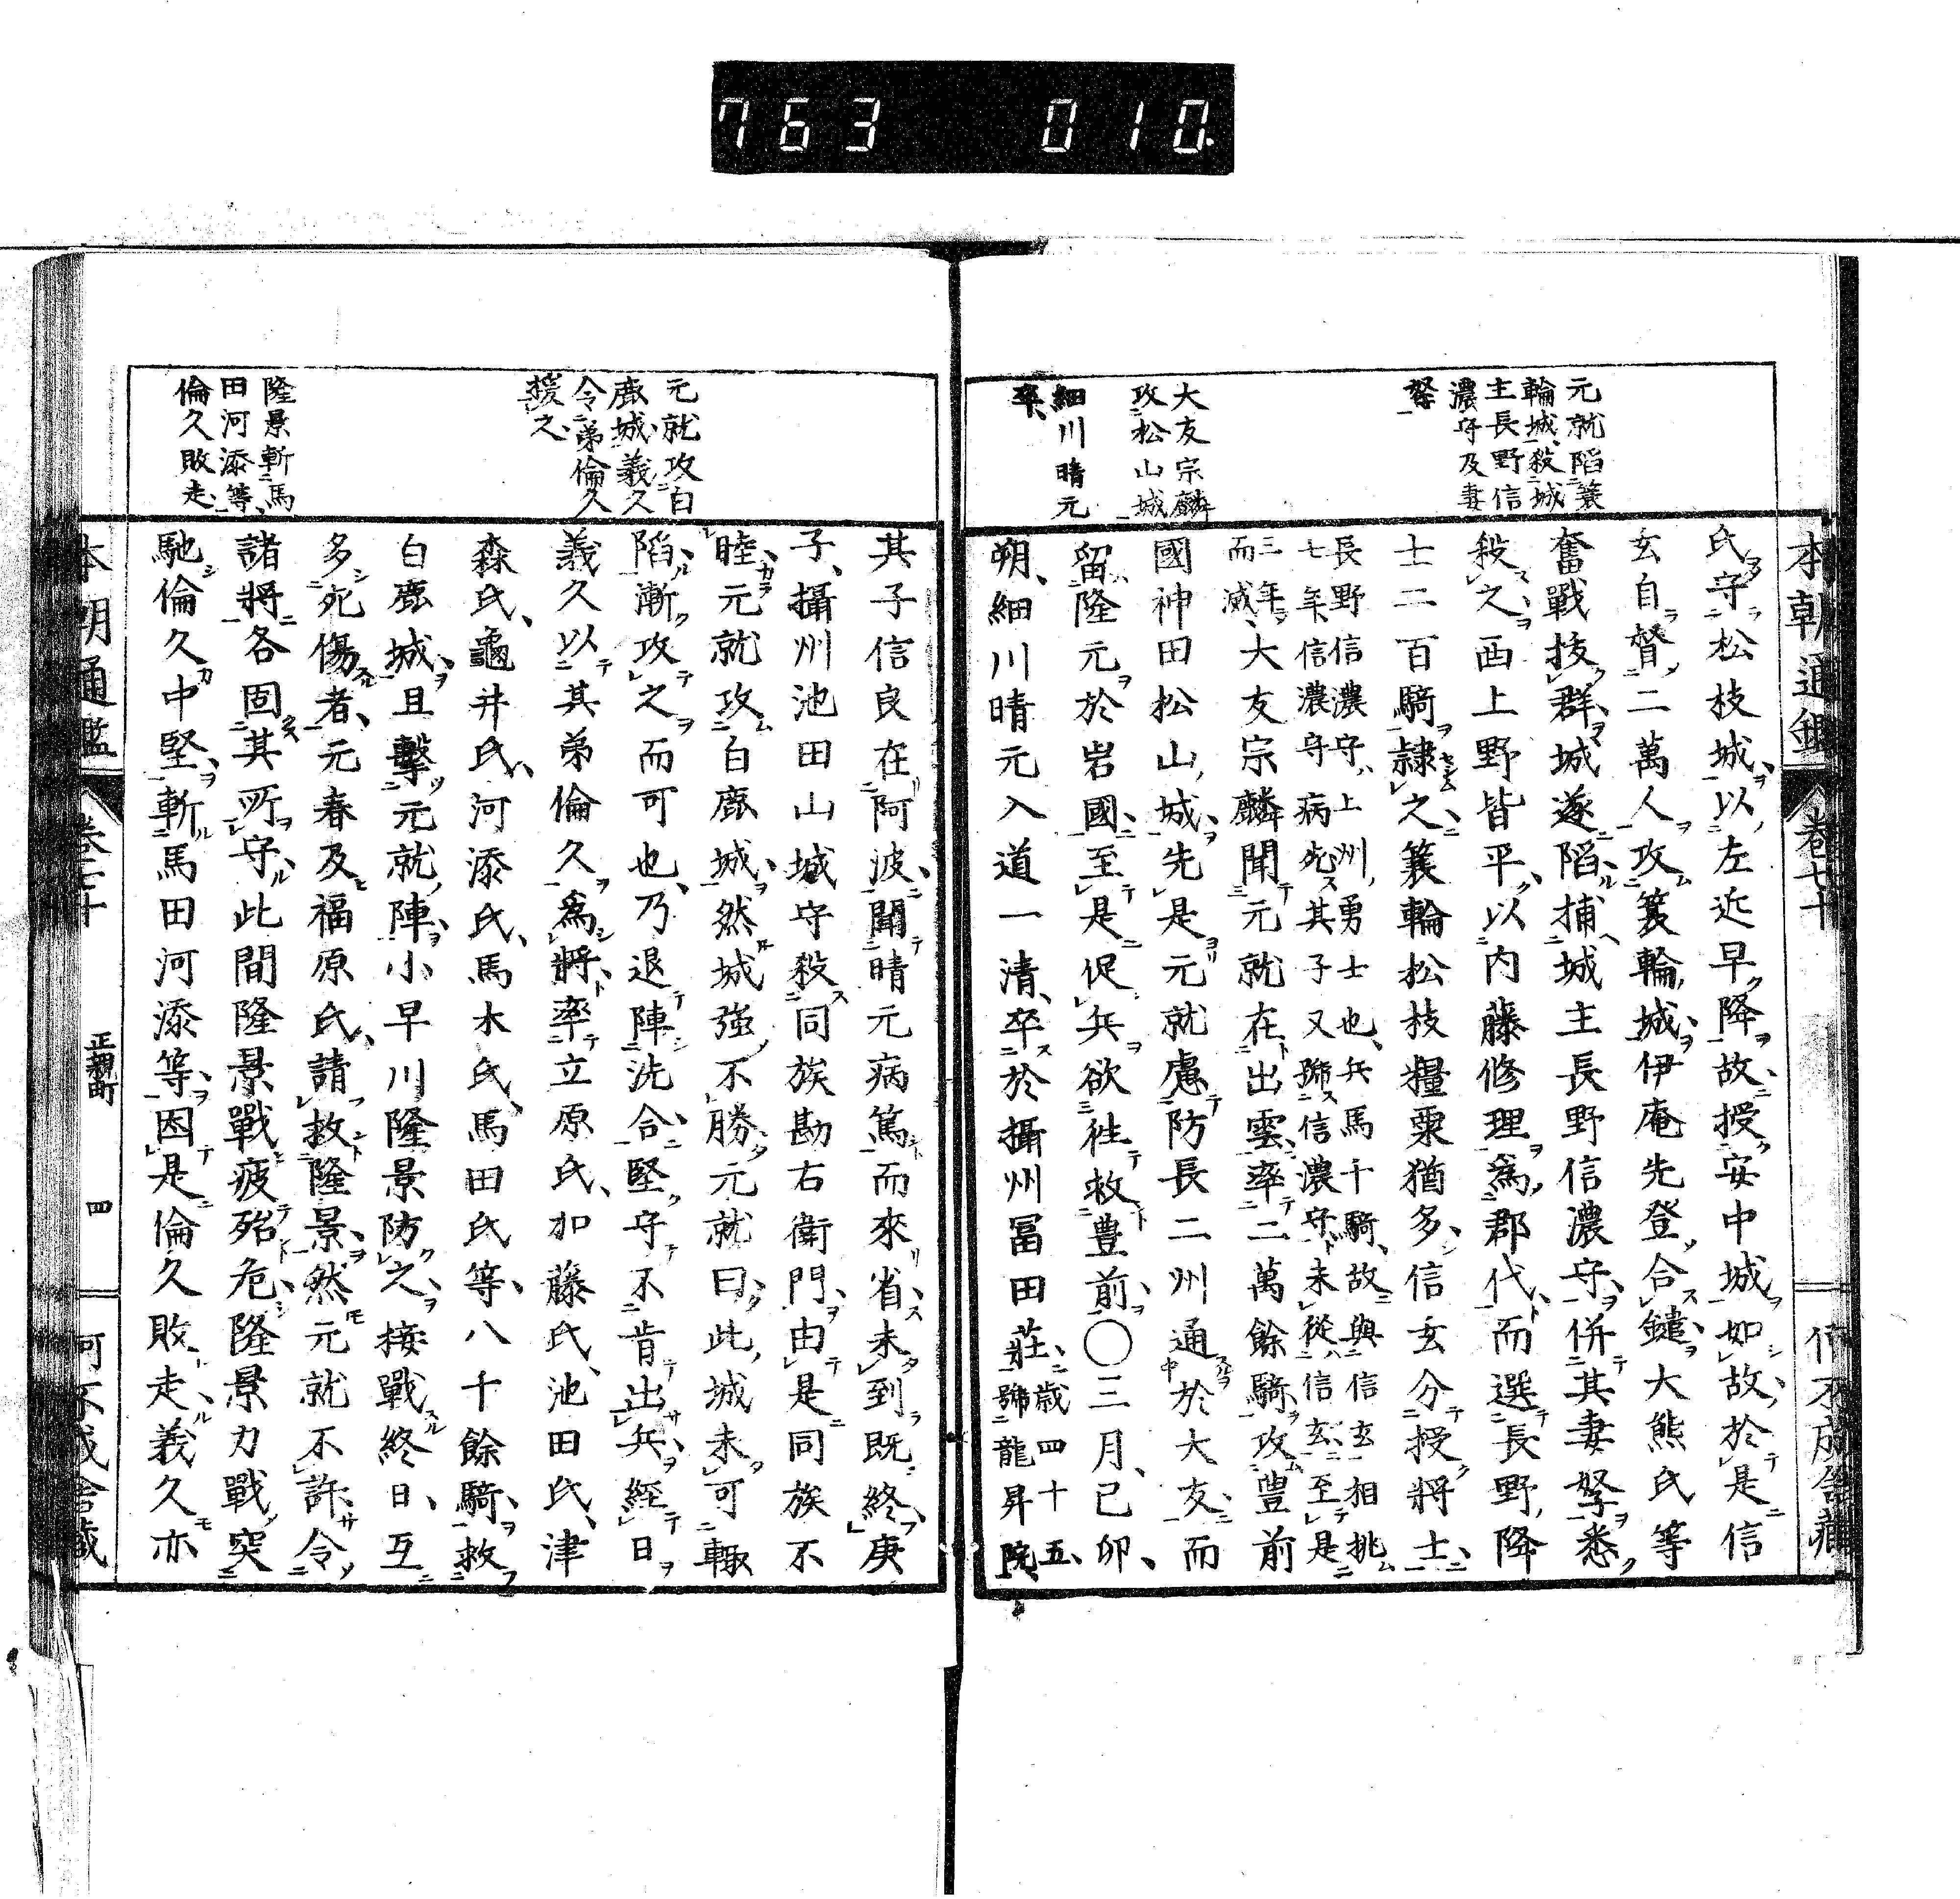 763 010.
本朝通鑑 卷七十
元就陷簑
輪城殺城
主長野信
濃守及妻
孥
大友宗麟
攻松山城
細川晴元
卒
氏守松枝城以左近早降故授安中城如故於是信
玄自督二萬人攻簑輪城伊庵先登合鑓大熊氏等
奮戰拔群城遂陷捕城主長野信濃守併其妻孥悉
殺之西上野皆平以内藤修理爲郡代而選長野降
士二百騎隷之簑輪松枝糧粟猶多信玄分授將士
長野信濃守上州勇士也兵馬千騎故與信玄相挑
七年信濃守病死其子又號信濃守未從信玄至是
三年而滅
大友宗麟聞元就在出雲率二萬餘騎攻豊前
國神田松山城先是元就慮防長二州通於大友而
留隆元於岩國至是促兵欲往救豊前〇三月己卯
朔細川晴元入道一清卒於攝州冨田莊
歳四十五
號龍昇院
元就攻白
鹿城義久
令弟倫久
援之
隆景斬馬
田河添等
倫久敗走
其子信良在阿波聞晴元病篤而來省未到既終庚
子攝州池田山城守殺同族勘右衛門由是同族不
睦元就攻白鹿城然城強不勝元就曰此城未可輙
陷漸攻之而可也乃退陣洗合堅守不肯出兵経日
義久以其弟倫久爲將率立原氏加藤氏池田氏津
森氏龜井氏河添氏馬木氏馬田氏等八千餘騎救
白鹿城且擊元就陣小早川隆景防之接戰終日互
多死傷者元春及福原氏請救隆景然元就不許令
諸將各固其所守此間隆景戰疲殆危隆景力戰突
馳倫久中堅斬馬田河添等因是倫久敗走義久亦
本朝通鑑 卷七十 正親町 四